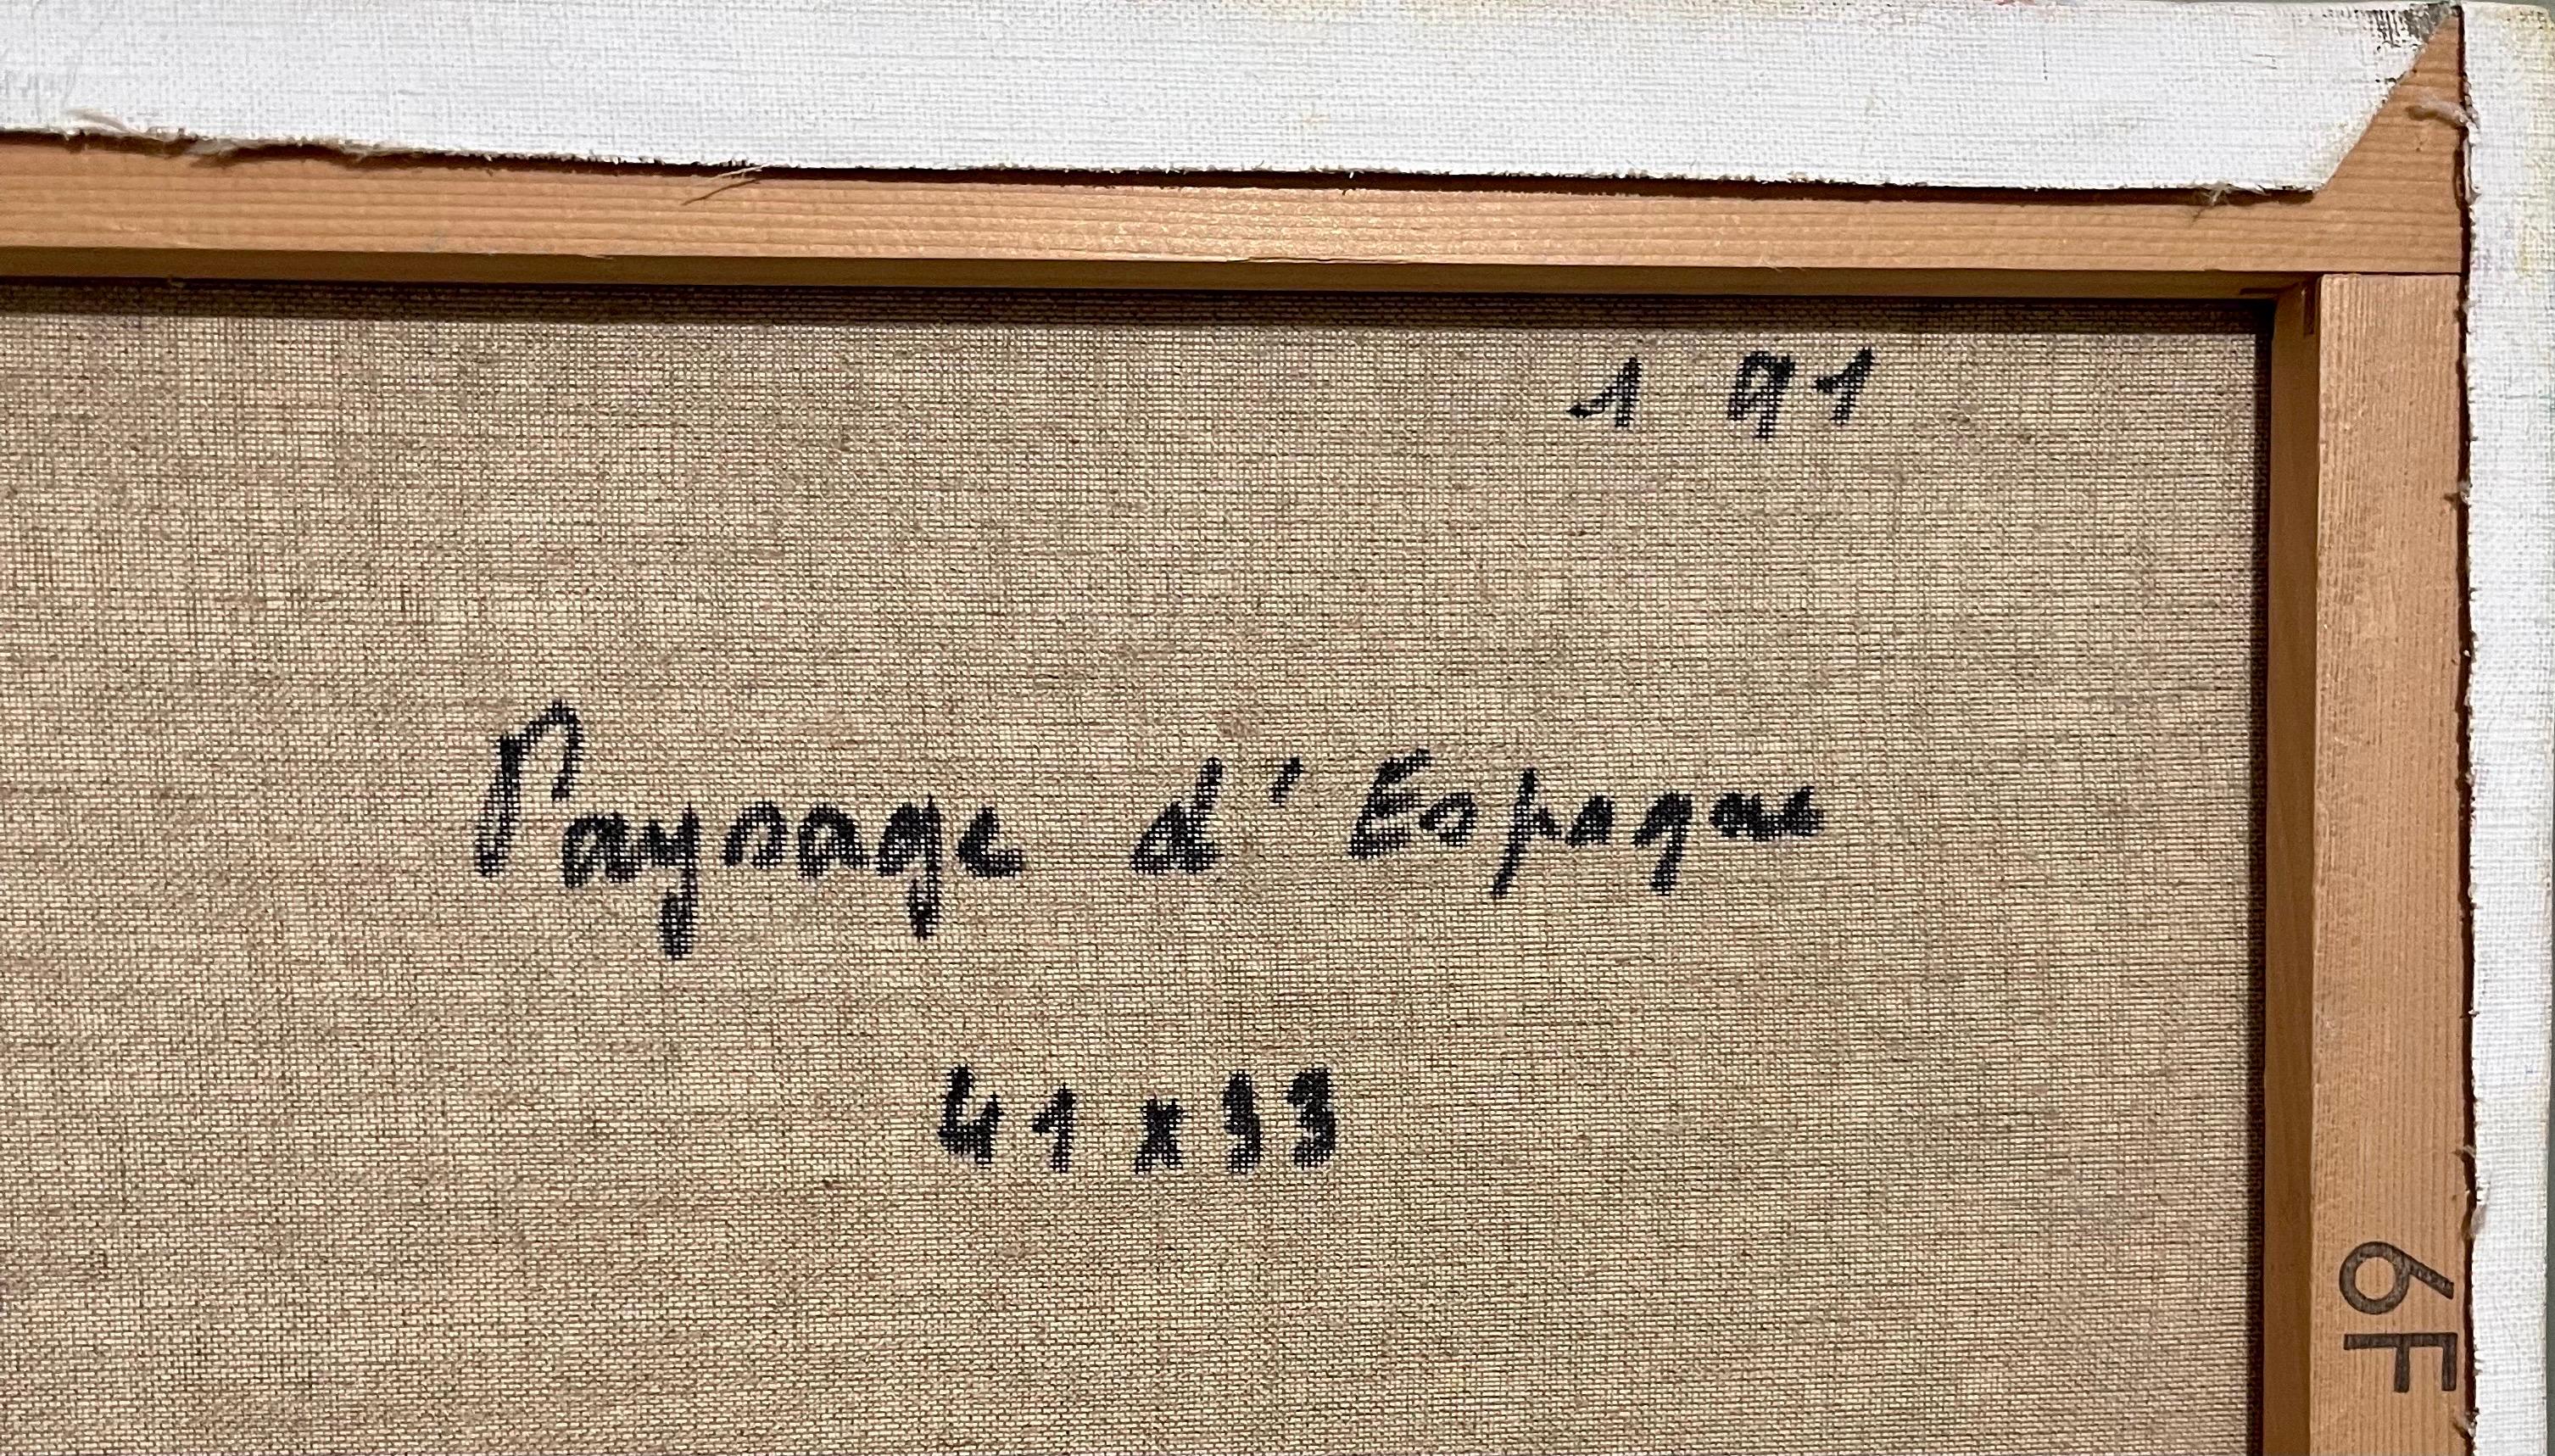 1 91
Paysage d'Espagne
41 x 33
6F